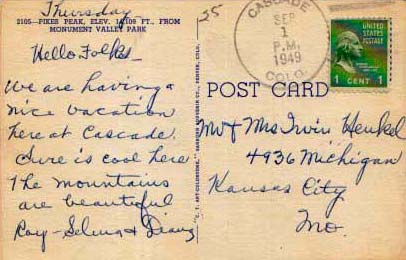 Thursday
2105—PIKES PEAK, ELEV. 14,109 FT., FROM
MONUMENT VALLEY PARK
Hello Folks—
We are having a
nice vacation
here at Cascade
Sure is cool here
The mountains
are beautiful
Ray—Selma & Diany
25
CASCADE
SEP
1
P.M.
1949
COLO.
UNITED STATES
POSTAGE
1 CENT 1
POST CARD
Mr & Mrs Irvin Henkel
4936 Michigan
Kansas City
Mo.